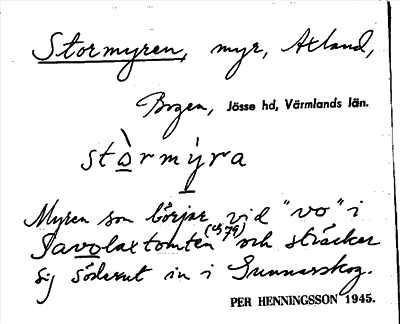 Stormyren, myr, Axland,
Bogen, Jösse hd, Värmlands län.
stòrmýra
Myren som börjar vid "vo" i
Savolaxtomten (sid 79) och sträcker
sig söderut in i Gunnarskog.
PER HENNINGSSON 1945.